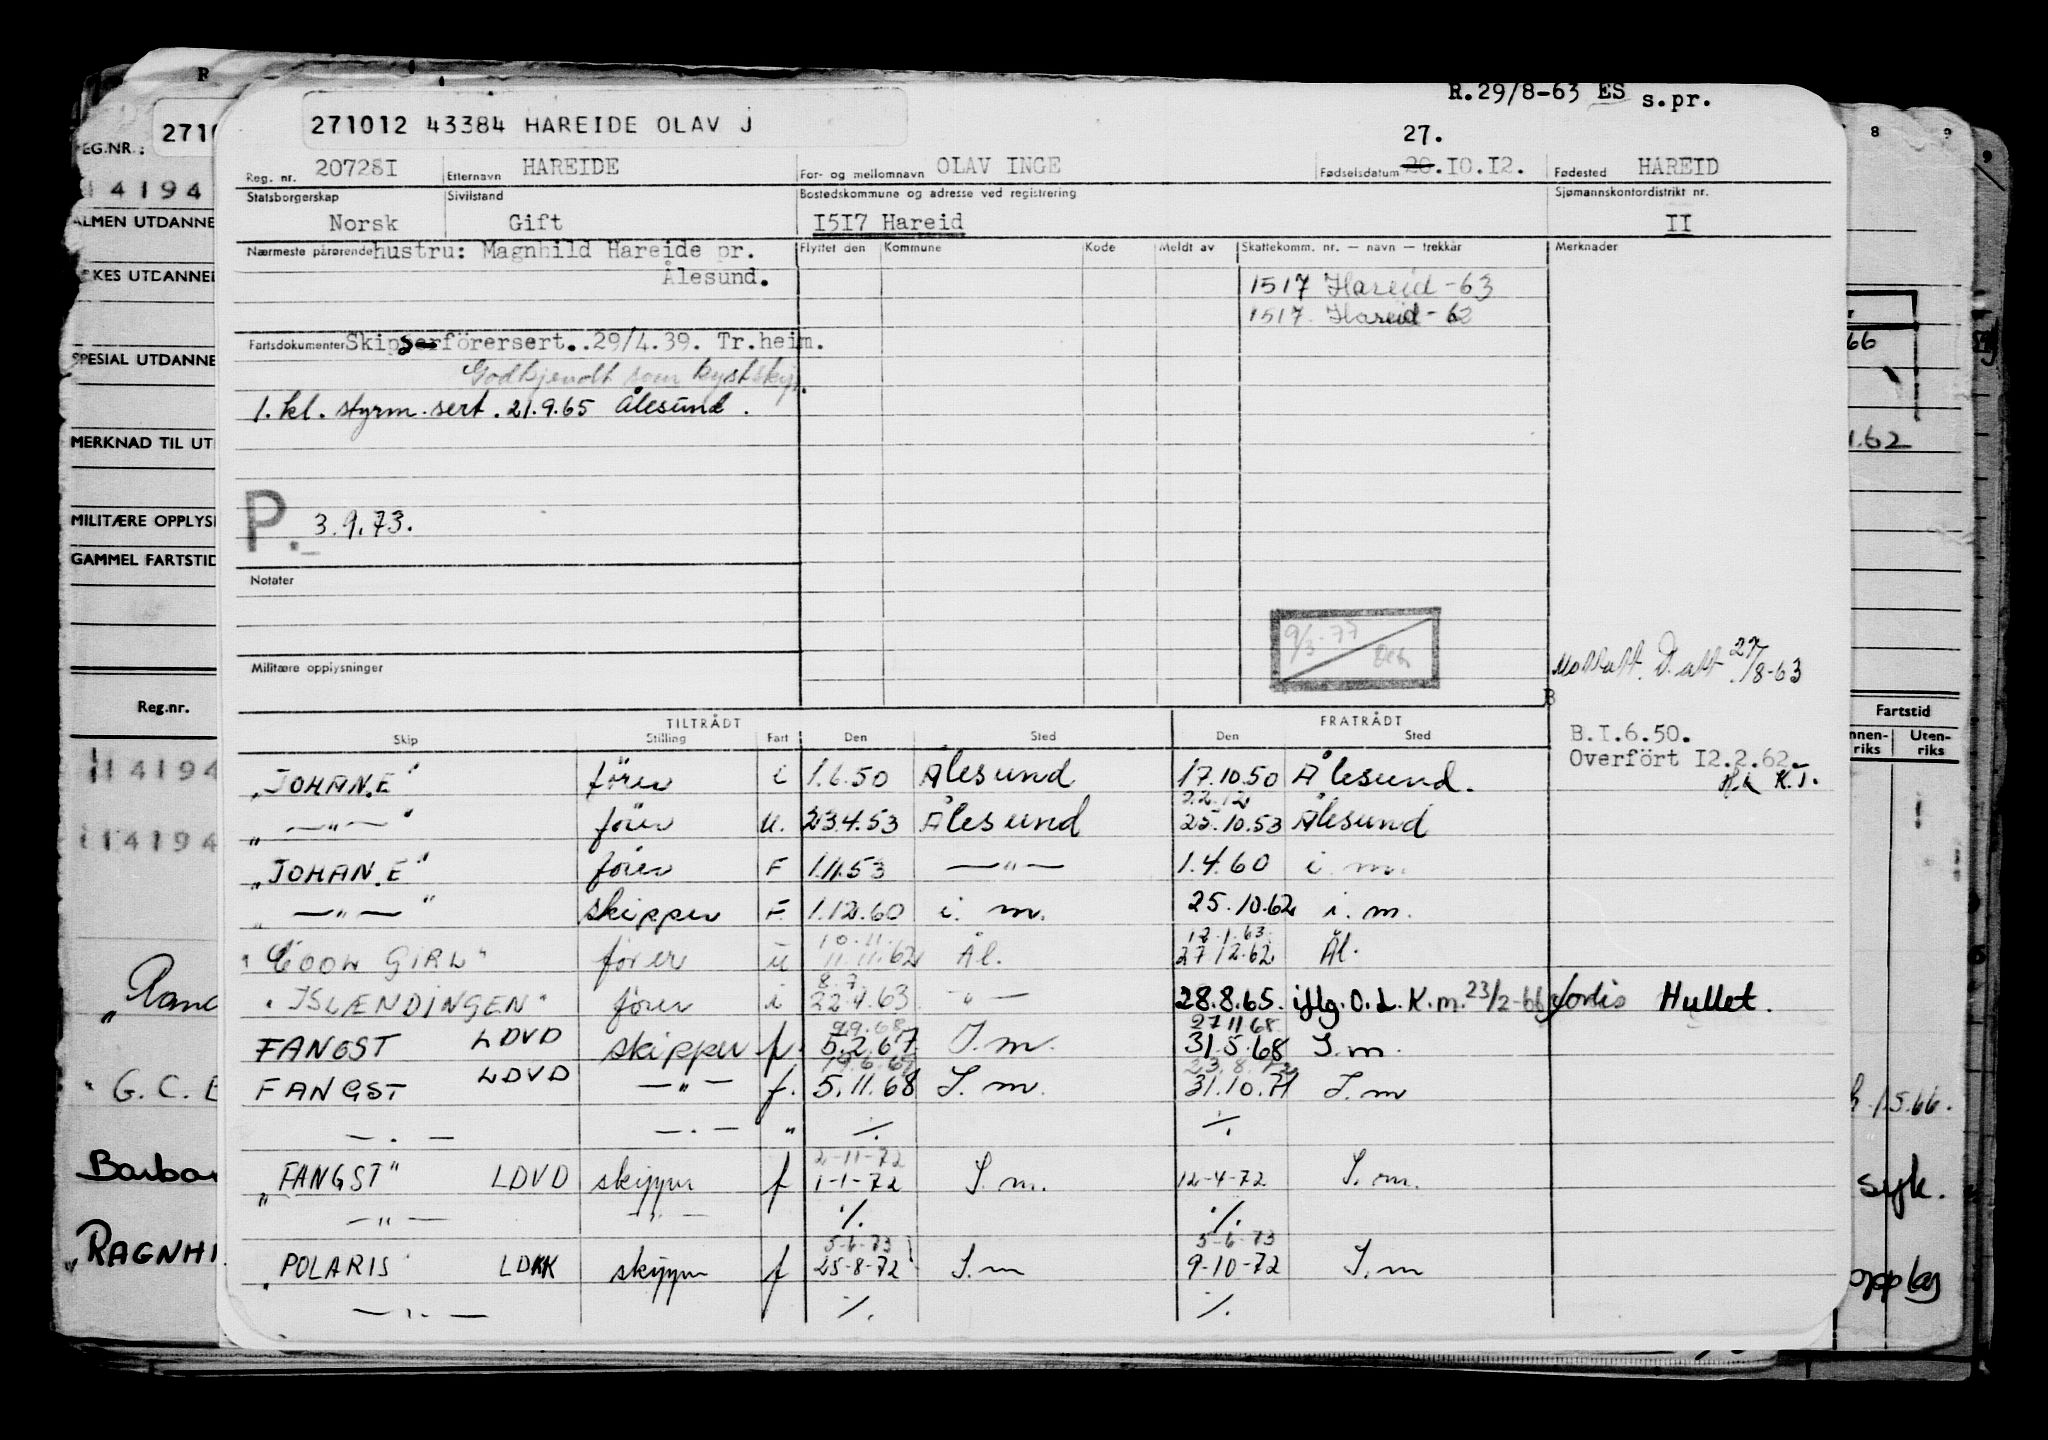 R.29/8-63 ES s.pr.
271012 43384 HAREIDE OLAV J
27.
Reg. nr. 207281 Etternavn HAREIDE For- og mellomnavn OLAV INGE Fødselsdatum 20.10.12. Fødested HAREID
Statsborgerskap Sivilstand Bostedskommune og adresse ved registrering Sjømannskontordistrikt nr.
Norsk Gift 1517 Hareid II
Nærmeste pårørende hustru: Magnhild Hareide pr. Flyttet den Kommune Kode Meldt av Skattekomm. nr. — navn — trekkår Merknader
Ålesund.
1517 Hareid -63
1517 Hareid - 62
Fartsdokumenter Skipserförersert..29/4.39. Tr.heim.
Godkjendt som kystskip.
1. kl. styrm. sert. 21.9.65 Ålesund.
P. 3.9.73.
Notater
9/3-77
Militære opplysninger
27/8-63
B
TILTRÅDT FRATRÅDT
Skip Stilling Fart Den Sted Den Sted
B.I.6.50.
Overfört I2.2.62.
„JOHAN.E" förer i 1.6.50 Ålesund 17.10.50 Ålesund.
22.12
„ —"— " förer u. 23.4.53 Ålesund 25.10.53 Ålesund
„JOHAN.E" förer F 1.11.53 —"— 1.4.60 i m.
„ —"— " skipper F. 1.12.60 i. m. 25.10.62 i. m.
10.11. 12.1.63.
GIRL" förer u 11.11.62 Ål. 27.12.62 Ål.
8.7
"ISLÆNDINGEN" förer i 22.4.63 " — 28.8.65. iflg. O.L.K.m. 23/2-66 Hullet.
9.9.68 27 11 68
FANGST LDVD skipper f. 5.2.67 I.m. 31.5.68 I.m.
FANGST LDVD — " — f. 5.11.68 I.m. 31.10.71 I.m
— . — — . — " ./. ./.
2-11-72
„FANGST" LDVD skipper f 1-1-72 I.m. 12-4-72 I.m.
— " — " — ./. ./.
5-6-73 5-6-73
„POLARIS LDKK skipper f 25-8-72 I.m 9-10-72 I.m
— . — ./. ./.
R
REG.NR.: 271
14194
ALMEN UTDANNE
KES UTDANNE
SPESIAL UTDANNE
MERKNAD TIL UT
MILITÆRE OPPLYS
GAMMEL FARTSTID
Reg.nr.
14194
14194
„Rand
"G. C. B
Barbar
„RAGNHI
8 9
66
1.62
Fartstid
Innen-riks Uten-riks
1.5.66.
syk.